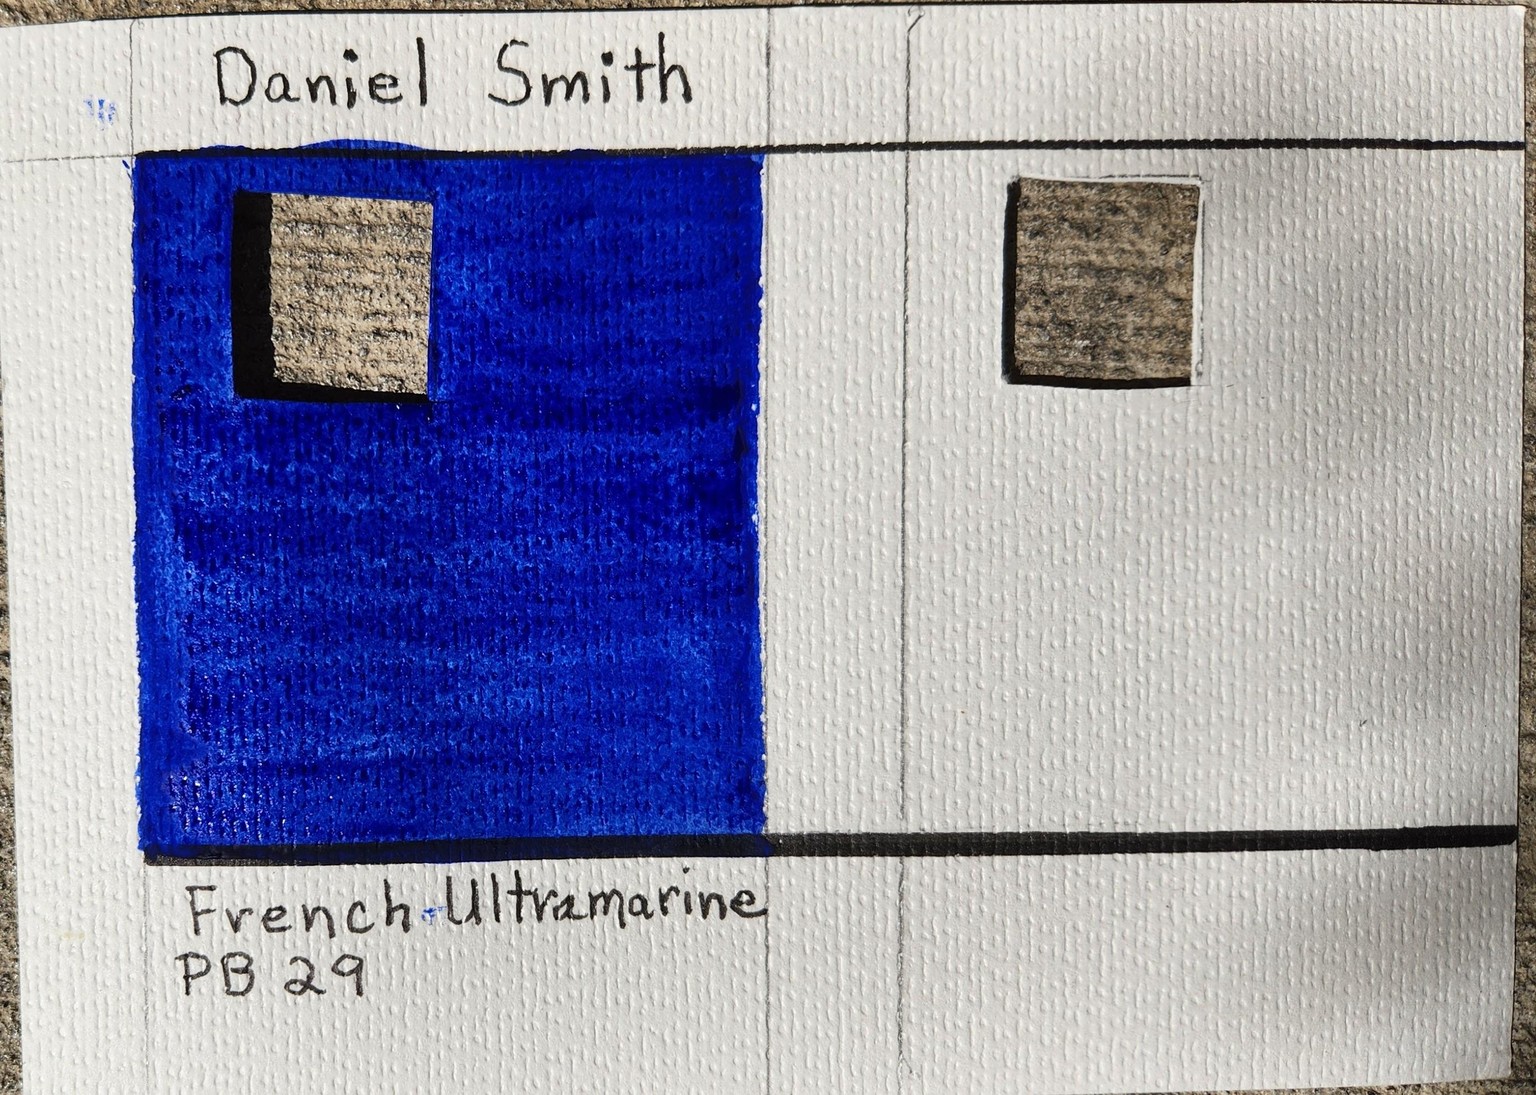 Daniel Smith
French Ultramarine
PB 29